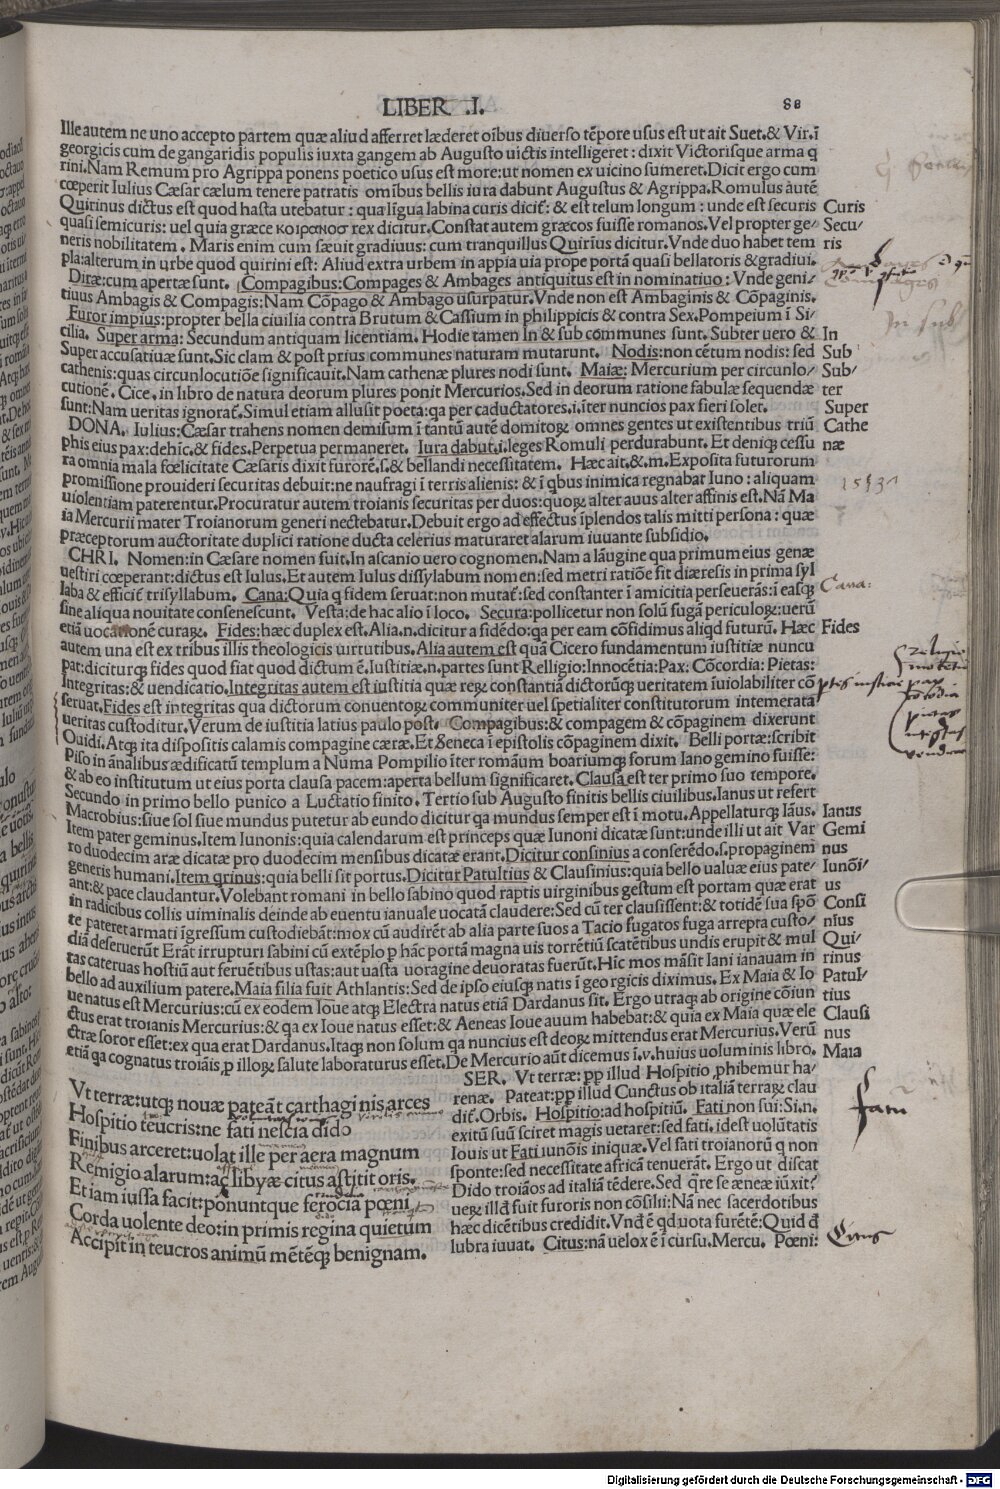 LIBER .I. 88
Ille autem ne uno accepto partem quæ aliud afferret læderet oībus diuerso tēpore usus est ut ait Suet.& Vir.ī
georgicis cum de gangaridis populis iuxta gangem ab Augusto uictis intelligeret : dixit Victorisque arma q
rini.Nam Remum pro Agrippa ponens poetico usus est more:ut nomen ex uicino sumeret.Dicit ergo cum
cœperit Iulius Cæsar cælum tenere patratis omībus bellis iura dabunt Augustus & Agrippa.Romulus àutē
Quirinus dictus est quod hasta utebatur : qua līgua labina curis dicit̄ : & est telum longum : unde est securis
quasi semicuris: uel quia græce κοιρανοσ rex dicitur.Constat autem græcos fuisse romanos.Vel propter ge/
neris nobilitatem . Maris enim cum sæuit gradiuus: cum tranquillus Quirīus dicitur.Vnde duo habet tem
pla:alterum in urbe quod quirini est: Aliud extra urbem in appia uia prope portā quasi bellatoris &gradiui.
Diræ:cum apertæ sunt. Compagibus:Compages & Ambages antiquitus est in nominatiuo : Vnde geni/
tiuus Ambagis & Compagis:Nam Cōpago & Ambago usurpatur.Vnde non est Ambaginis & Cōpaginis.
Furor impius:propter bella ciuilia contra Brutum & Cassium in philippicis & contra Sex.Pompeium ī Si/
cilia. Super arma: Secundum antiquam licentiam. Hodie tamen In & sub communes sunt. Subter uero &
Super accusatiuæ sunt.Sic clam & post prius communes naturam mutarunt. Nodis:non cētum nodis: sed
cathenis:quas circunlocutiōe significauit.Nam cathenæ plures nodi sunt. Maiæ: Mercurium per circunlo/
cutionē. Cice.in libro de natura deorum plures ponit Mercurios.Sed in deorum ratione fabulæ sequendæ
sunt:Nam ueritas ignorat̄.Simul etiam allusit poeta:qa per caductatores.i.īter nuncios pax fieri solet.
DONA. Iulius:Cæsar trahens nomen demisum ī tantū autē domitoꝝ omnes gentes ut existentibus triū
phis eius pax:dehic.& fides.Perpetua permaneret. Iura dabut.i.leges Romuli perdurabunt. Et deniqꝫ cessu
ra omnia mala fœlicitate Cæsaris dixit furorē.ſ.& bellandi necessitatem. Hæc ait.&.m.Exposita futurorum
promissione prouideri securitas debuit:ne naufragi ī terris alienis: & ī qbus inimica regnabar Iuno : aliquam
uiolentiam paterentur.Procuratur autem troianis securitas per duos:quoꝝ alter auus alter affinis est.Nā Ma
ia Mercurii mater Troianorum generi nectebatur.Debuit ergo ad effectus īplendos talis mitti persona : quæ
præceptorum auctoritate duplici ratione ducta celerius maturaret alarum iuuante subsidio.
CHRI. Nomen:in Cæsare nomen fuit.In ascanio uero cognomen.Nam a lāugine qua primum eius genæ
uestiri cœperant:dictus est Iulus.Et autem Iulus dissylabum nomen:sed metri ratiōe fit diæresis in prima syl
laba & efficit̄ trisyllabum. Cana:Quia q fidem seruat:non mutat̄:sed constanter ī amicitia perseuerās:ī easqꝫ
sine aliqua nouitate consenescunt. Vesta:de hac alio ī loco. Secura:pollicetur non solū fugā periculoꝝ:uerū
etiā uocationē curaꝝ. Fides:hæc duplex est.Alia.n.dicitur a fidēdo:qa per eam cōfidimus aliqd futurū. Hæc
autem una est ex tribus illis theologicis uirtutibus.Alia autem est quā Cicero fundamentum iustitiæ nuncu
pat:diciturqꝫ fides quod fiat quod dictum ē.Iustitiæ.n.partes sunt Relligio:Innocētia:Pax: Cōcordia: Pietas:
Integritas:& uendicatio.Integritas autem est iustitia quæ reꝝ constantiā dictorūqꝫ ueritatem īuiolabiliter cō
seruat.Fides est integritas qua dictorum conuentoꝝ communiter uel spetialiter constitutorum intemerata
ueritas custoditur.Verum de iustitia latius paulo post. Compagibus:& compagem & cōpaginem dixerunt
Ouidi.Atqꝫ ita dispositis calamis compagine cæræ.Et Seneca ī epistolis cōpaginem dixit. Belli portæ:scribit
Piso in ānalibus ædificatū templum a Numa Pompilio īter romāum boariumqꝫ forum Iano gemino fuisse:
& ab eo institutum ut eius porta clausa pacem:aperta bellum significaret. Clausa est ter primo suo tempore.
Secundo in primo bello punico a Luctatio finito. Tertio sub Augusto finitis bellis ciuilibus.Ianus ut refert
Macrobius:siue sol siue mundus putetur ab eundo dicitur qa mundus semper est ī motu.Appellaturqꝫ Iāus.
Item pater geminus.Item Iunonis:quia calendarum est princeps quæ Iunoni dicatæ sunt:unde illi ut ait Var
ro duodecim aræ dicatæ pro duodecim mensibus dicatæ erant.Dicitur consinius a conserēdo.ſ.propaginem
generis humani.Item qrinus:quia belli sit portus.Dicitur Patultius & Clausinius:quia bello ualuæ eius pate/
ant:& pace claudantur.Volebant romani in bello sabino quod raptis uirginibus gestum est portam quæ erat
in radicibus collis uiminalis deinde ab euentu ianuale uocatā claudere:Sed cū ter clausissent:& totidē sua spō
te pateret armati īgressum custodiebāt:mox cū audirēt ab alia parte suos a Tacio fugatos fuga arrepta custo/
diā deseruerūt Erāt irrupturi sabini cū extēplo p hāc portā magna uis torrētiū scatētibus undis erupit & mul
tas cateruas hostiū aut feruētibus ustas:aut uasta uoragine deuoratas fuerūt.Hic mos māsit Iani ianauam in
bello ad auxilium patere.Maia filia fuit Athlantis:Sed de ipso eiusqꝫ natis ī georgicis diximus. Ex Maia & Io
ue natus est Mercurius:cū ex eodem Ioue atqꝫ Electra natus etiā Dardanus sit. Ergo utraqꝫ ab origine cōiun
ctus erat troianis Mercurius:& qa ex Ioue natus esset:& Aeneas Ioue auum habebat:& quia ex Maia quæ ele
ctræ soror esset:ex qua erat Dardanus.Itaqꝫ non solum qa nuncius est deoꝝ mittendus erat Mercurius. Verū
etiā qa cognatus troiāis.p illoꝝ salute laboraturus esset.De Mercurio aūt dicemus ī.v.huius uoluminis libro.
Vt terræ:utqꝫ nouæ pateāt carthaginis arces
Hospitio teucris:ne fati nescia dido
Finibus arceret:uolat ille per aera magnum
Remigio alarum:ac libyæ citus astitit oris.
Et iam iussa facit:ponuntque ferocia pœni
Corda uolente deo:in primis regina quietum
Accipit in teucros animū mētēqꝫ benignam.
SER. Vt terræ: pp illud Hospitio phibemur ha/
renæ. Pateat:pp illud Cunctus ob italiā terraꝝ clau
dit̄.Orbis. Hospitio:ad hospitiū. Fati non sui:Si.n.
exitū suū sciret magis uetaret:sed fati.idest uolūtatis
Iouis ut Fati iunōis iniquæ.Vel fati troianorū q non
sponte:sed necessitate africā tenuerāt. Ergo ut discat
Dido troiāos ad italiā tēdere. Sed qre se æneæ iūxit?
ueꝝ illd fuit furoris non cōsilii: Nā nec sacerdotibus
hæc dicētibus credidit.Vnd ē qd uota furētē:Quid d
lubra iuuat. Citus:nā uelox ē ī cursu.Mercu. Pœni:
Curis
Secu/
ris
In
Sub
Sub/
ter
Super
Cathe
næ
1593
Cana:
Fides
Ianus
Gemi
nus
Iunōi/
us
Consi
nius
Qui/
rinus
Patul/
tius
Clausi
nus
Maia
Fatū
Citus
Digitalisierung gefördert durch die Deutsche Forschungsgemeinschaft - DFG